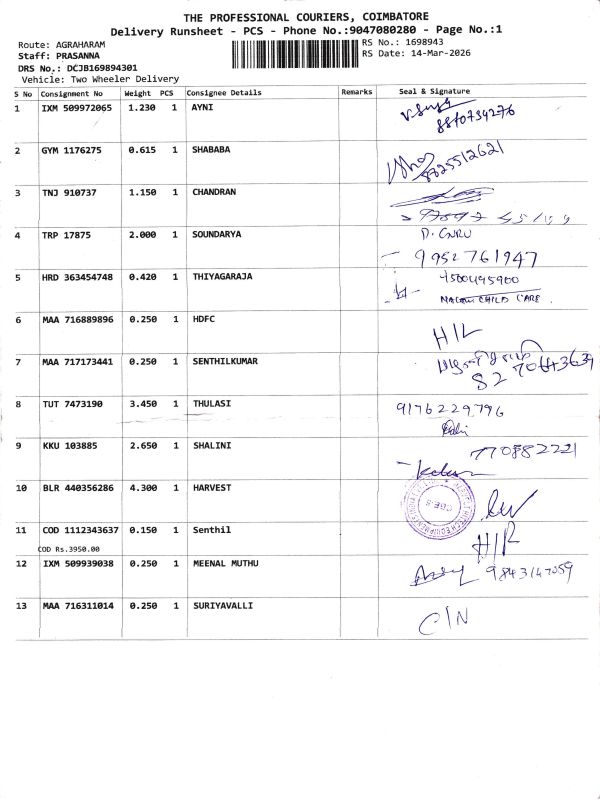 THE PROFESSIONAL COURIERS, COIMBATORE
Delivery Runsheet - PCS - Phone No.:9047080280 - Page No.:1
Route: AGRAHARAM
Staff: PRASANNA
DRS No.: DCJB169894301
Vehicle: Two Wheeler Delivery
RS No.: 1698943
RS Date: 14-Mar-2026
S No Consignment No Weight PCS Consignee Details Remarks Seal & Signature
1 IXM 509972065 1.230 1 AYNI
8870734276
2 GYM 1176275 0.615 1 SHABABA
8825512621
3 TNJ 910737 1.150 1 CHANDRAN
4 TRP 17875 2.000 1 SOUNDARYA D. GURU
9952761947
5 HRD 363454748 0.420 1 THIYAGARAJA 4500495900
CHILD CARE
6 MAA 716889896 0.250 1 HDFC H/L
7 MAA 717173441 0.250 1 SENTHILKUMAR
8 TUT 7473190 3.450 1 THULASI 9176229796
9 KKU 103885 2.650 1 SHALINI 770882221
10 BLR 440356286 4.300 1 HARVEST
11 COD 1112343637 0.150 1 Senthil H/R
COD Rs.3950.00
12 IXM 509939038 0.250 1 MEENAL MUTHU 9843147059
13 MAA 716311014 0.250 1 SURIYAVALLI C/N